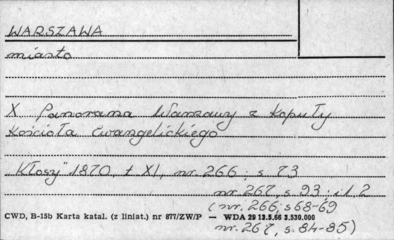 WARSZAWA
miasto
X Panorama Warszawy z kopuły
Kościoła Ewangelickiego
"Kłosy" 1870, t. XI, nr. 266; s. 73
nr. 267, s. 93; il. 2
(nr. 266; s 68-69
CWD, B-15b Karta katal. (z liniat.) nr 877/ZW/P — WDA 29 13.5.66 2.530.000
nr. 267, s. 84-85)